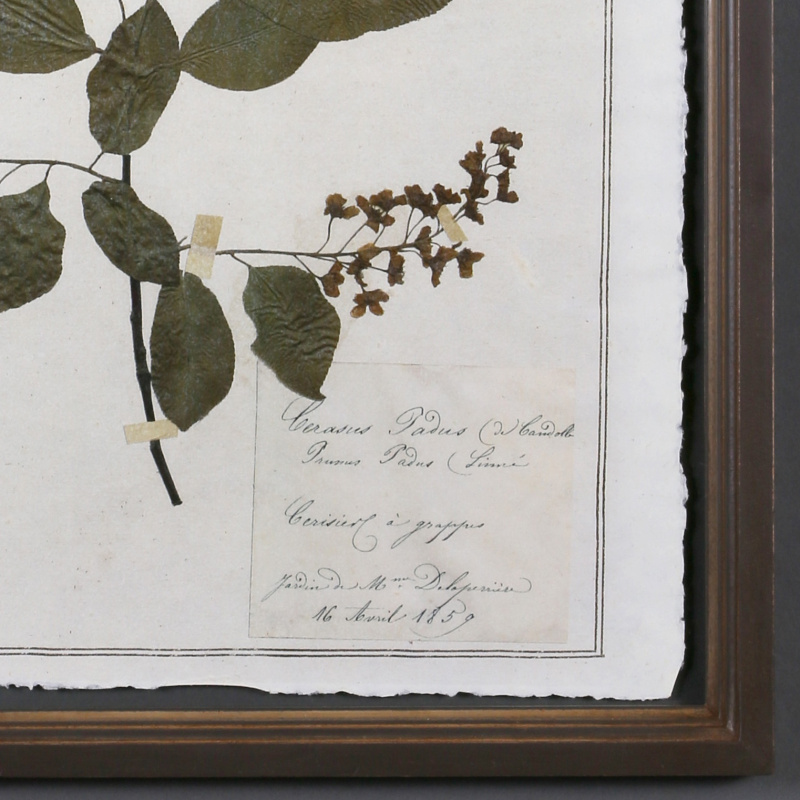 Cerasus Padus (de Candolle
Prunus Padus (Linné
Cerisier à grappes
Jardin de Mme Delaperrière
16 Avril 1859